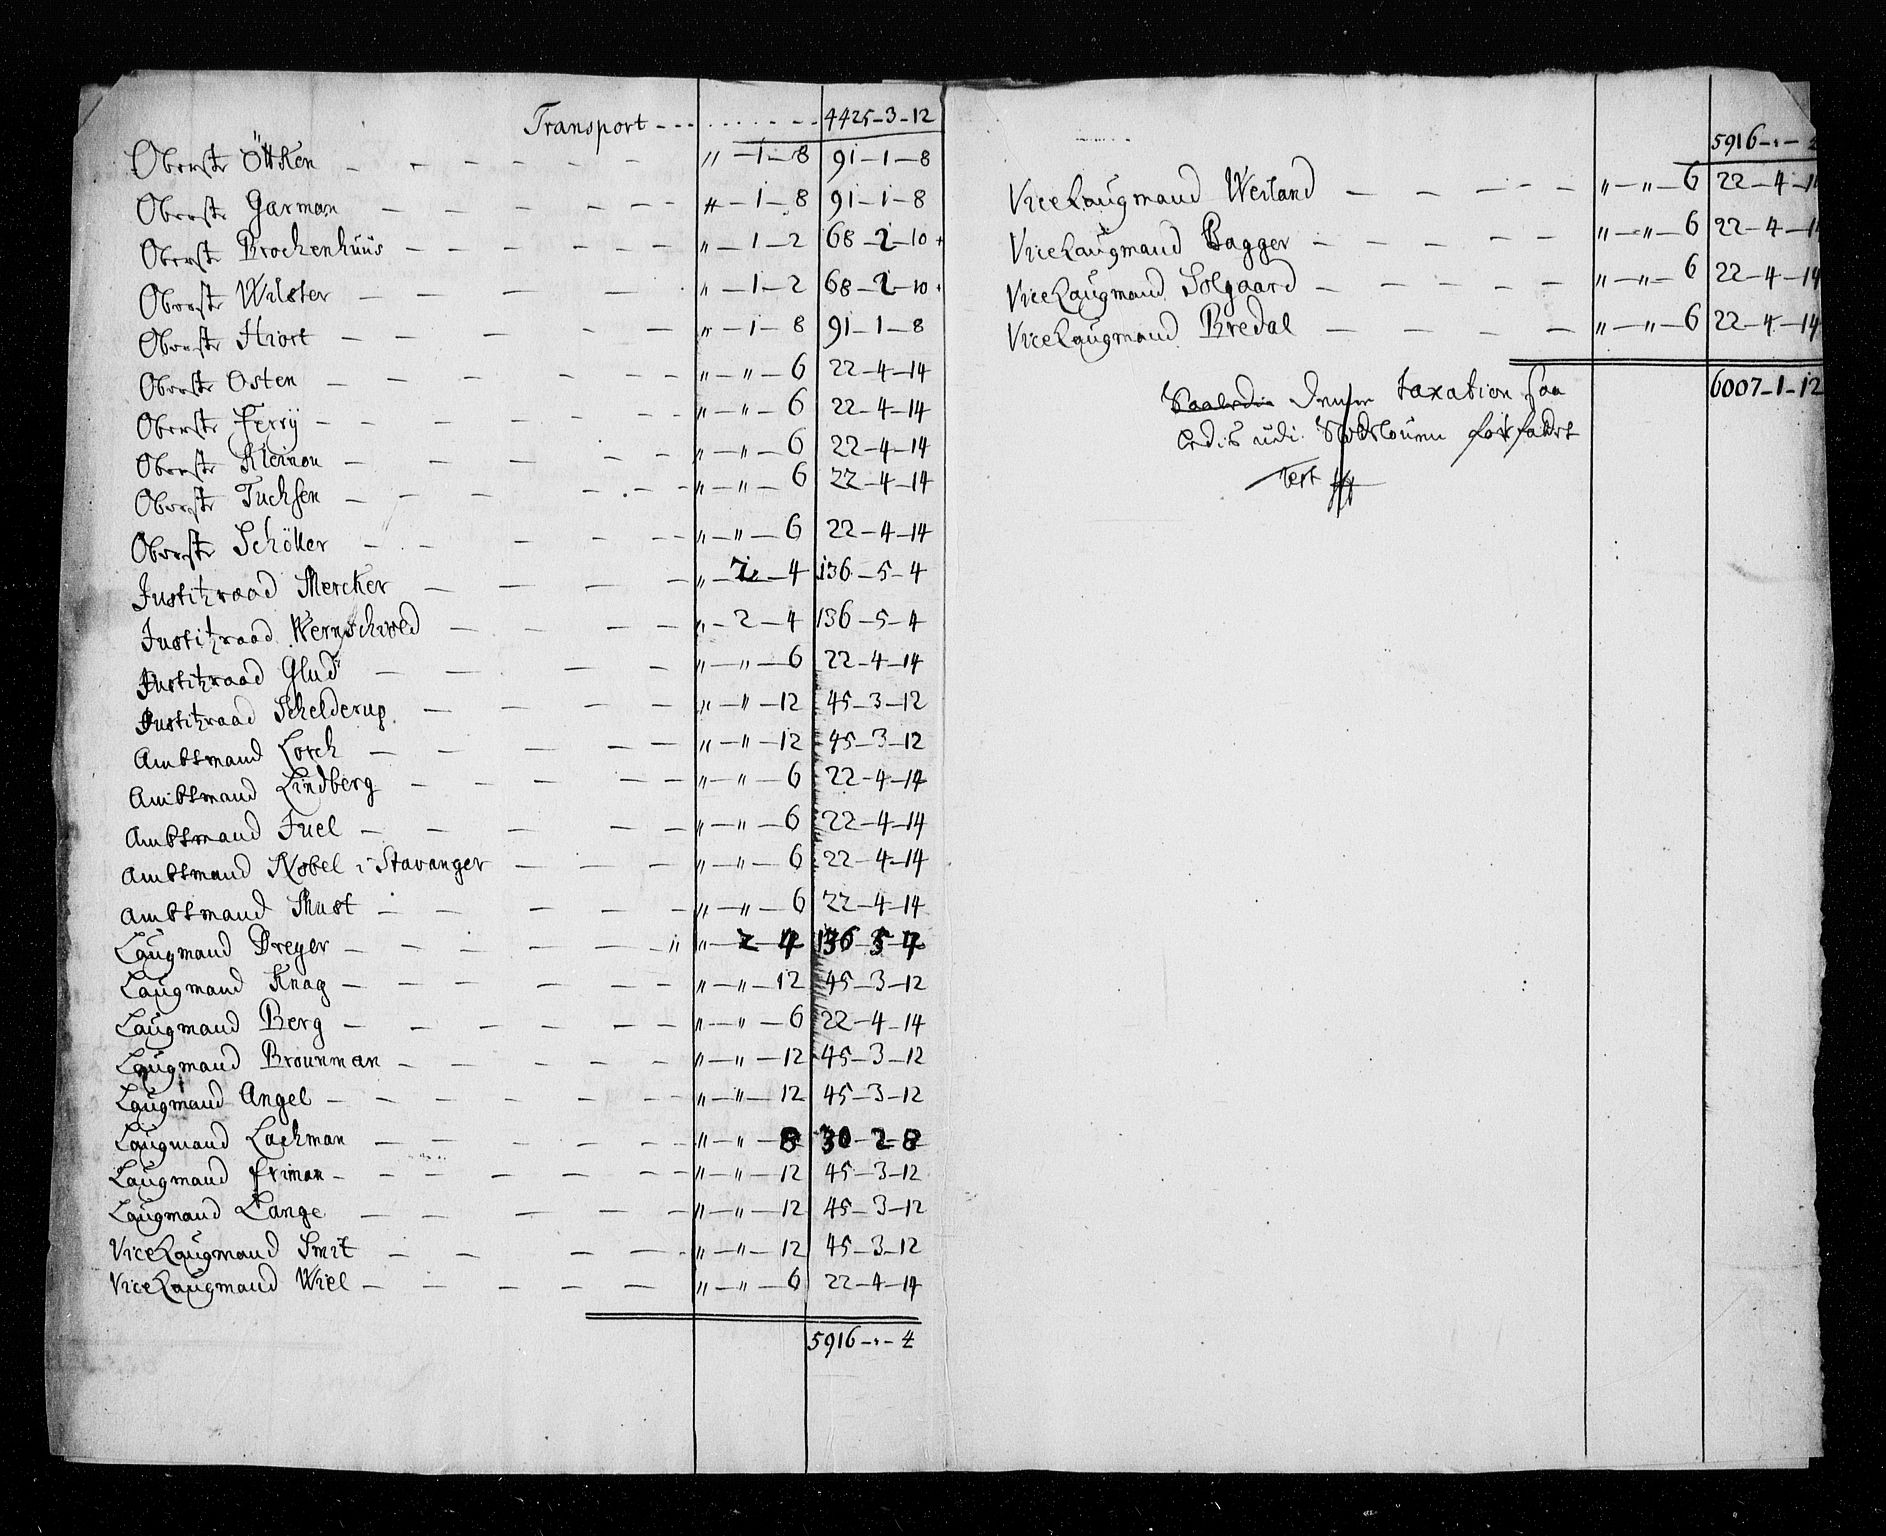 Transport - - - . . . . . . - - 4425-3-12
Oberste Öttken - - - - - - " - 1 - 8 91-1-8
Oberste Garman - - - - - - " - 1 - 8 91-1-8
Oberste Brockenhuus - - - - - " - 1 - 2 68-2-10
Oberste Wilster - - - - - " - 1 - 2 68-2-10
Oberste Hiort - - - - - " - 1 - 8 91-1-8
Oberste Osten - - - - - - " - " - 6 22-4-14
Oberste Ferrÿ - - - - - " - " - 6 22-4-14
Oberste Kleinou - - - - - " - " - 6 22-4-14
Oberste Tuchsen - - - - - " - " - 6 22-4-14
Oberste Schöller - - - - - " - " - 6 22-4-14
Justitzraad Mercker - - - - " - 2 - 4 136-5-4
Justitzraad Wernschold - - - - " - 2 - 4 136-5-4
Justitzraad Glud - - - - " - " - 6 22-4-14
Justitzraad Schelderup - - - - " - " - 12 45-3-12
Ambtmand Lorch - - - - - " - " - 12 45-3-12
Ambtmand Lindberg - - - - - " - " - 6 22-4-14
Ambtmand Juel - - - - - " - " - 6 22-4-14
Ambtmand Nobel i Stavanger - - - - " - " - 6 22-4-14
Ambtmand Rust - - - - - " - " - 6 22-4-14
Laugmand Dreyer - - - - - " " - 2 - 4 136-5-4
Laugmand Knag - - - - - - " - " - 12 45-3-12
Laugmand Berg - - - - - - " - " - 6 22-4-14
Laugmand Brounman - - - - - " - " - 12 45-3-12
Laugmand Angel - - - - - - " - " - 12 45-3-12
Laugmand Lachman - - - - - " - " - 8 30-2-8
Laugmand Friman - - - - - - " - " - 12 45-3-12
Laugmand Lange - - - - - " - " - 12 45-3-12
ViceLaugmand Smit - - - - - " - " - 12 45-3-12
ViceLaugmand Wiel - - - - - " - " - 6 22-4-14
5916-"-4
5916-"-4
ViceLaugmand Weiland - - - - - " - " - 6 22-4-14
ViceLaugmand Bagger - - - - - " - " - 6 22-4-14
ViceLaugmand Solgaard - - - - - " - " - 6 22-4-14
ViceLaugmand Bredal - - - - - " - " - 6 22-4-14
6007-1-12
Saaledis Denne taxation saa
ledis udi forfatet
Test